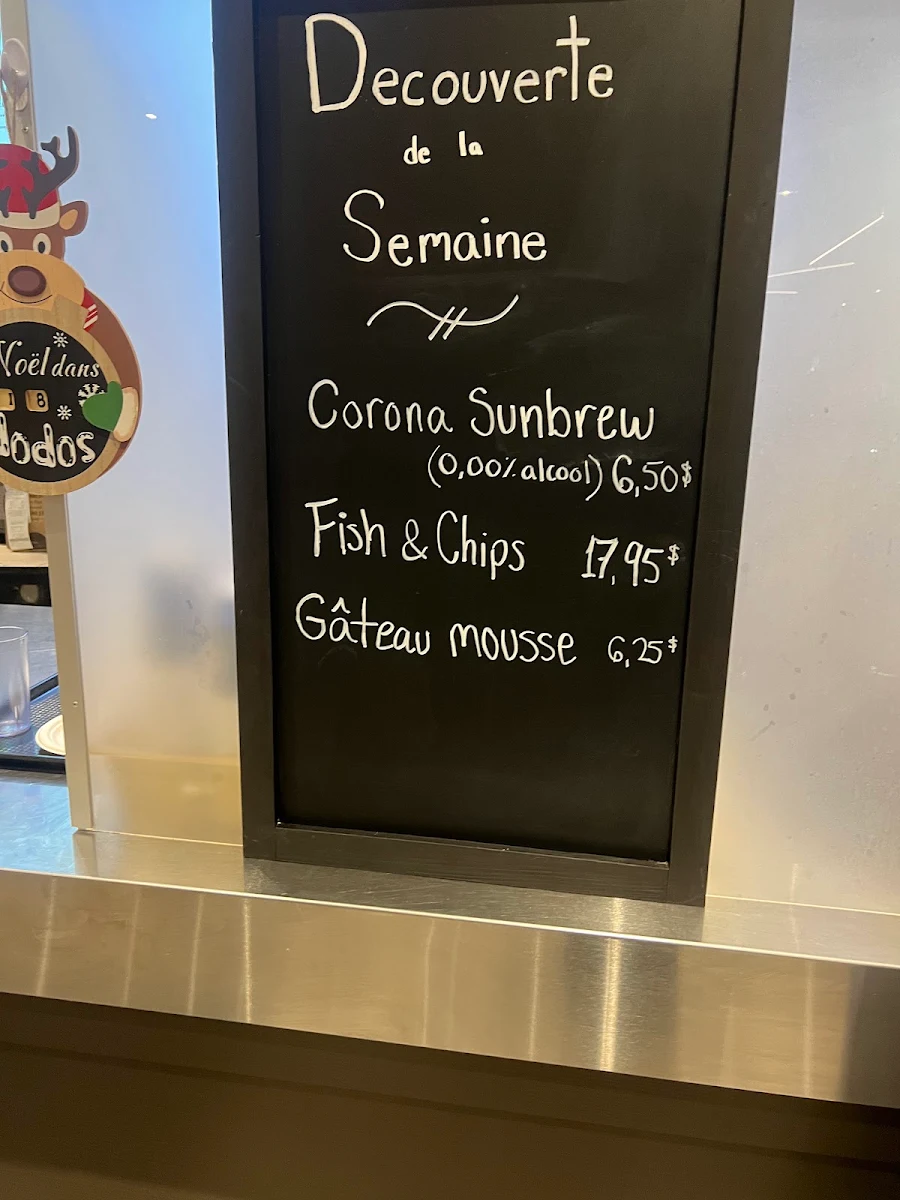 Decouverte
de la
Semaine
Corona Sunbrew
(0,00% alcool) 6,50$
Fish & Chips 17,95$
Gâteau mousse 6,25$
Noël dans
18
dodos